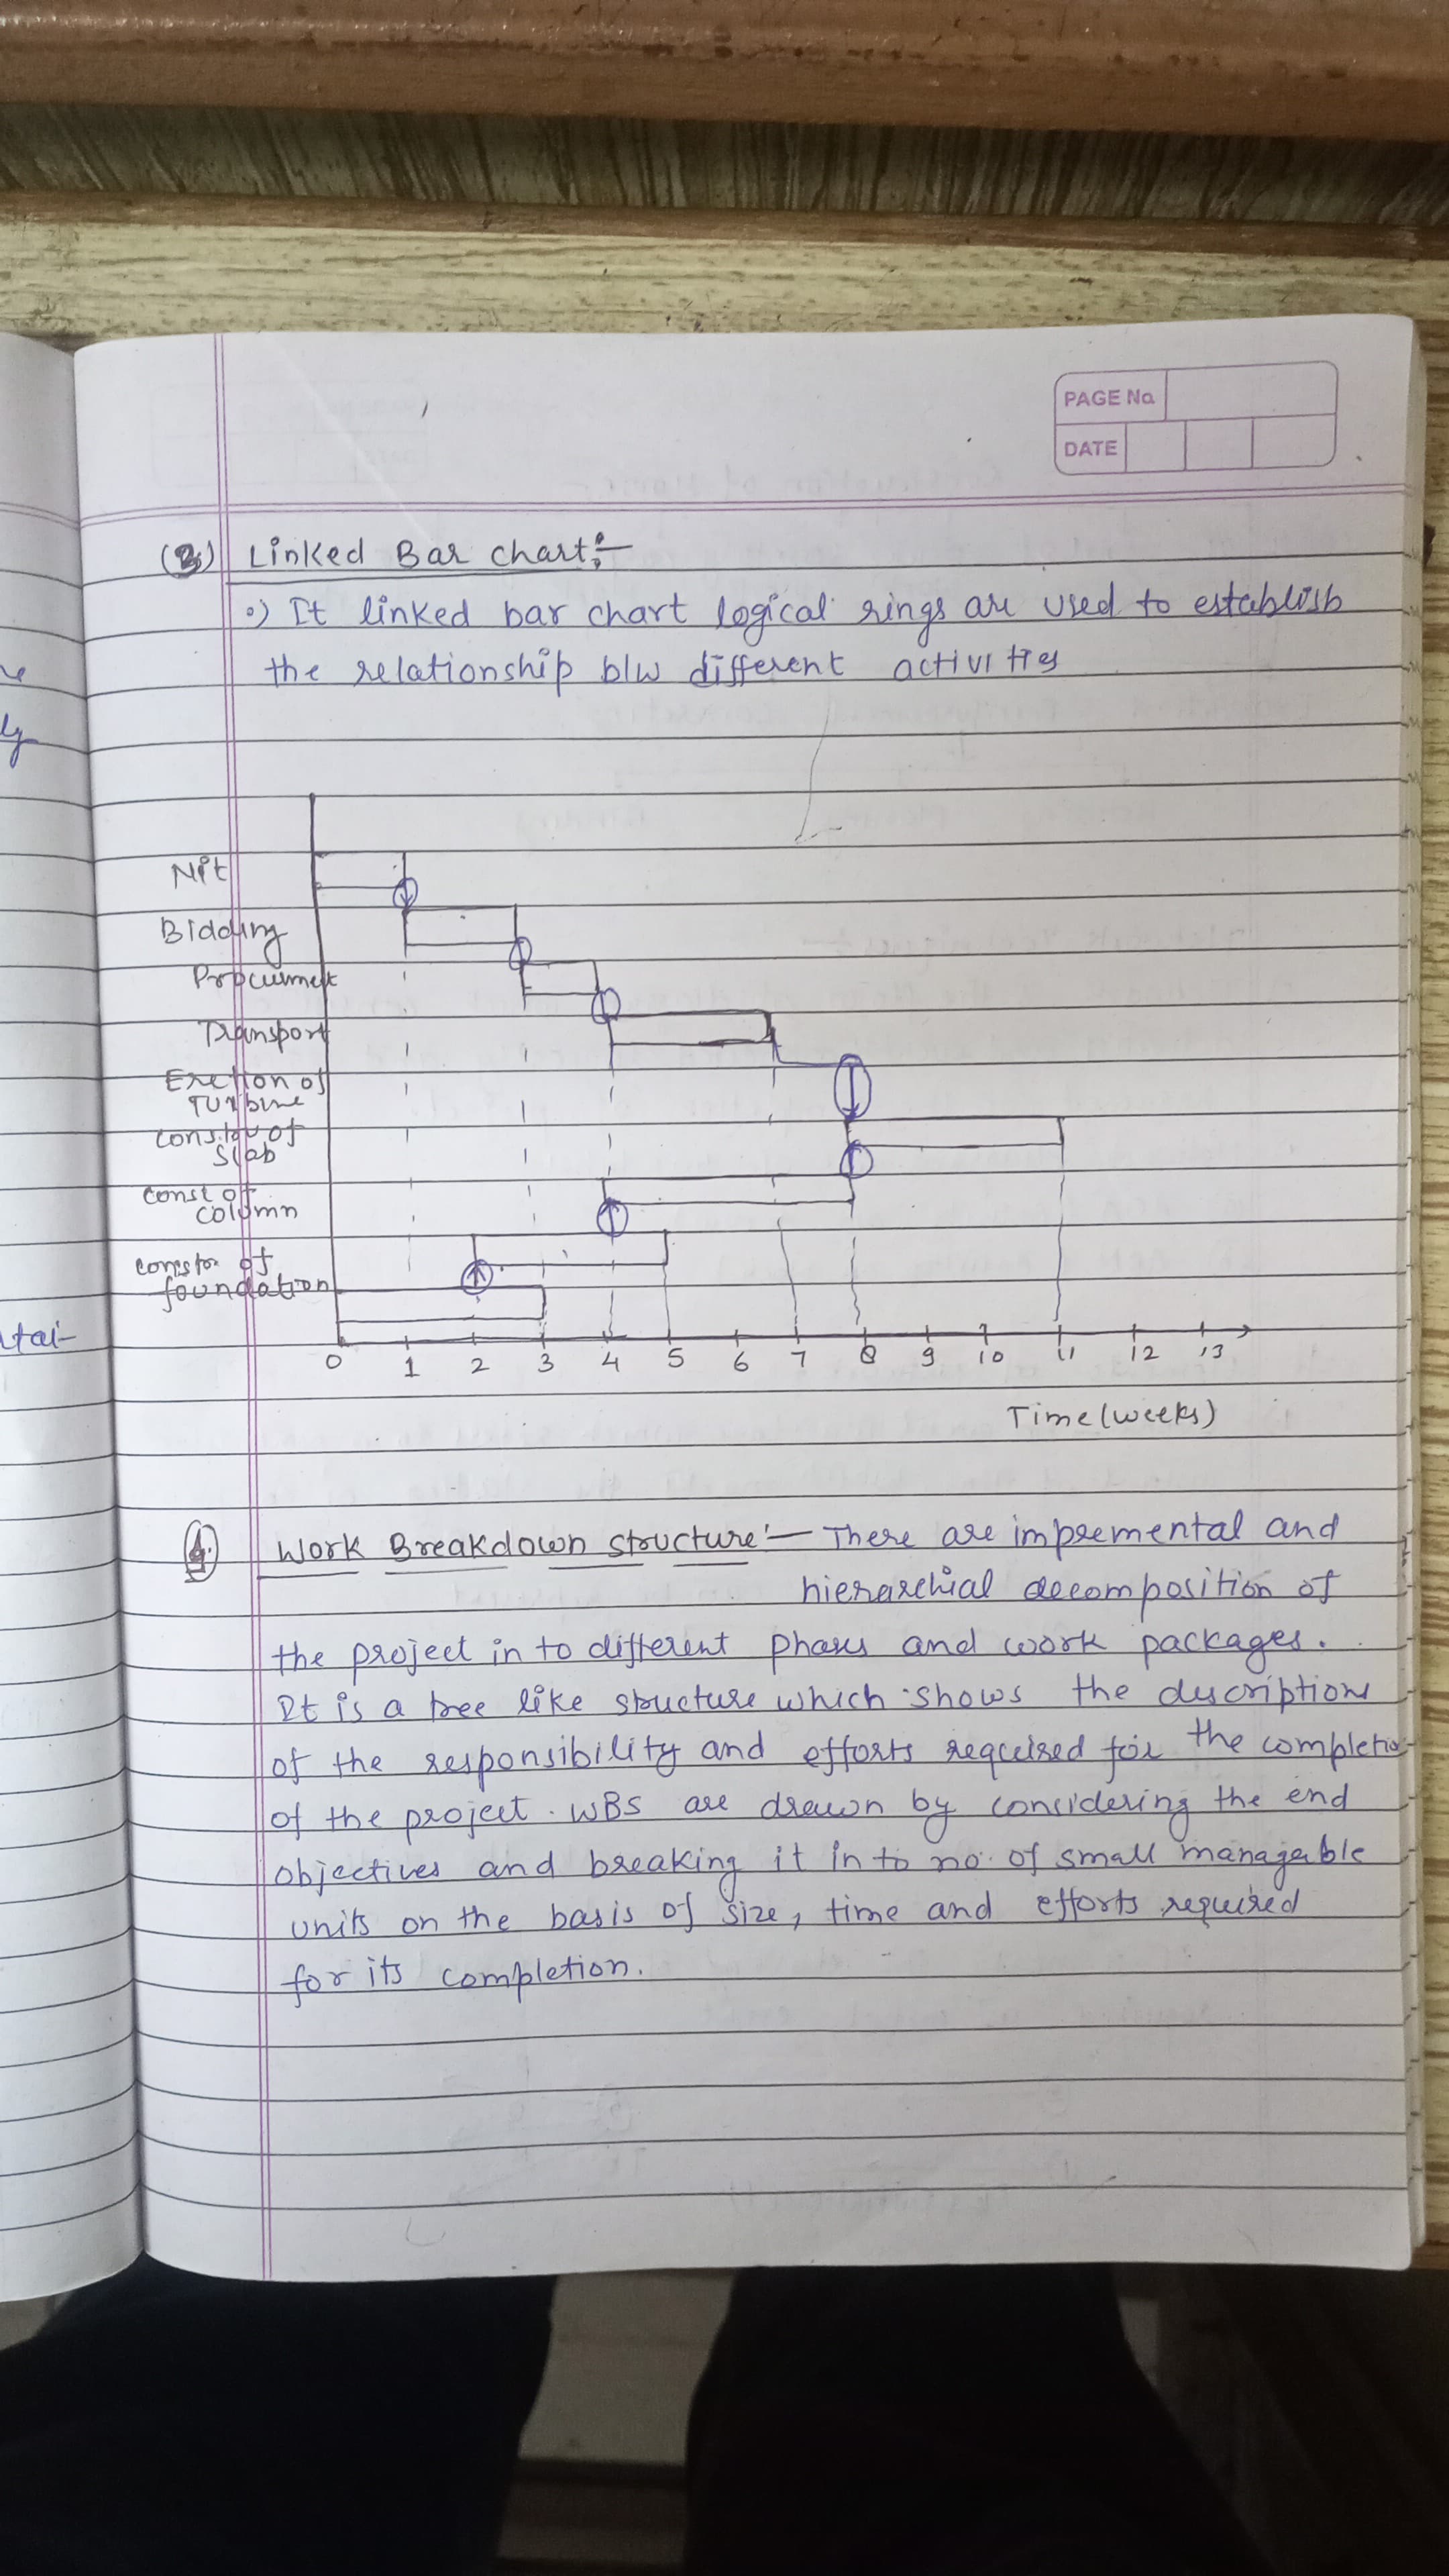 PAGE No
DATE
(3) Linked Bar chart:-
•) It linked bar chart logical rings are used to establish
the relationship b/w different activities
Nit
Bidding
Procurment
Transport
Erection of
Turbine
of
Slab
const of
column
constn of
foundation
0 1 2 3 4 5 6 7 8 9 10 11 12 13
Time (weeks)
4. Work Breakdown structure:- There are impremental and
hierarchial decomposition of
the project in to different phases and work packages.
It is a tree like structure which shows the descriptions
of the responsibility and efforts required for the completio
of the project. WBS are drawn by considering the end
objectives and breaking it in to no. of small managable
units on the basis of size, time and efforts required
for its completion.
ly